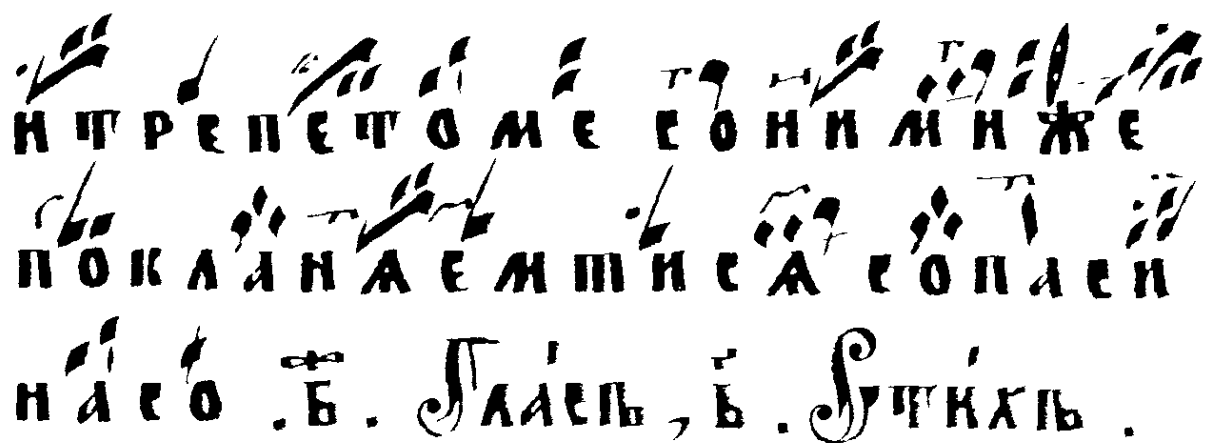 и трепетоме сонимиже
покланѧемтисѧ сопаси
насо . б҃ . Гла́съ , в҃ . Сти́хъ .